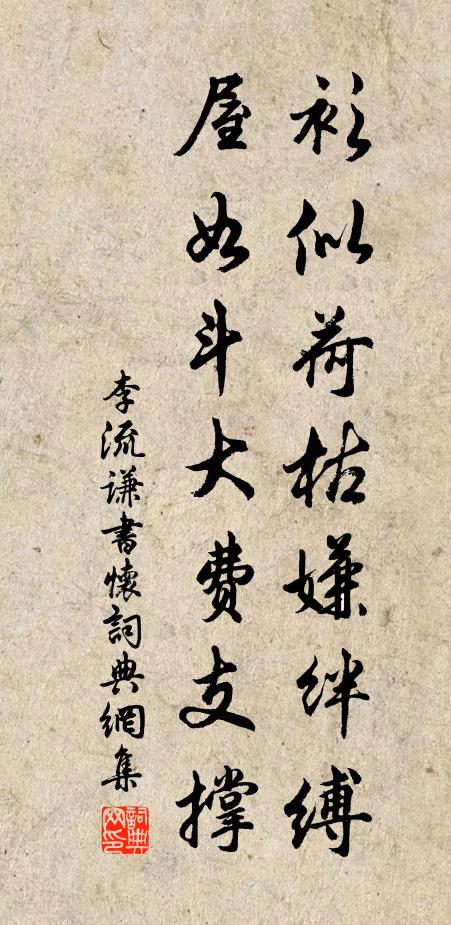 衫似荷枯嫌絆縛
屋如斗大費支撐
李流謙書懷詞典網集
詞典網印